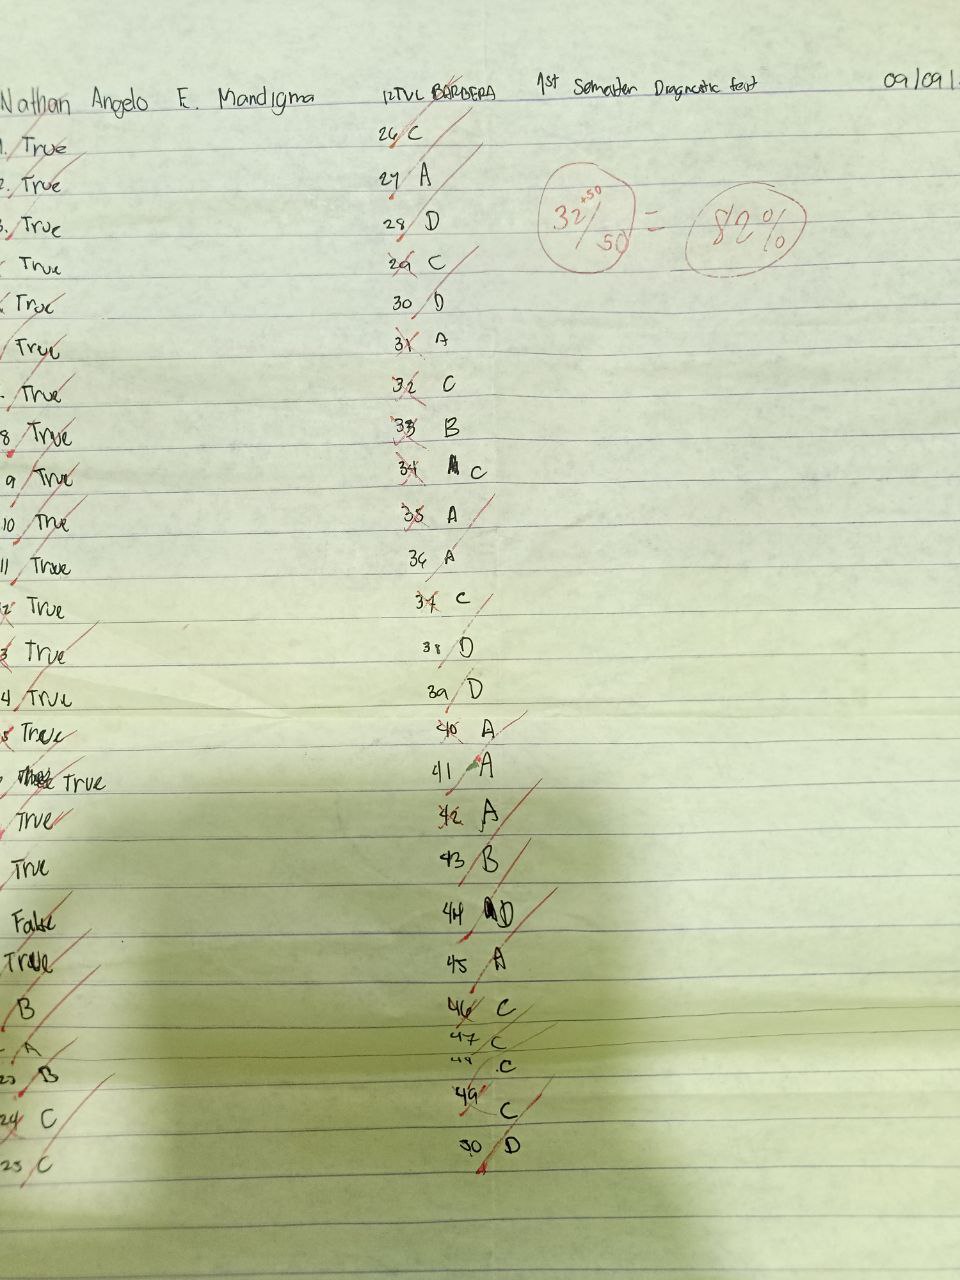 Nathan Angelo E. Mandigma 12TVL BARBERA 1st Semester Diagnostic test 09/09/
1. True
2. True
3. True
True
True
True
True
8 True
9 True
10 True
11 True
2 True
3 True
4 True
5 True
True
True
True
False
True
B
A
23 B
24 C
25 C
26 C
27 A
28 D
29 C
30 D
31 A
32 C
33 B
34 C
35 A
36 A
37 C
38 D
39 D
40 A
41 A
42 A
43 B
44 D
45 A
46 C
47 C
48 C
49 C
50 D
32/50 +50 = 82%